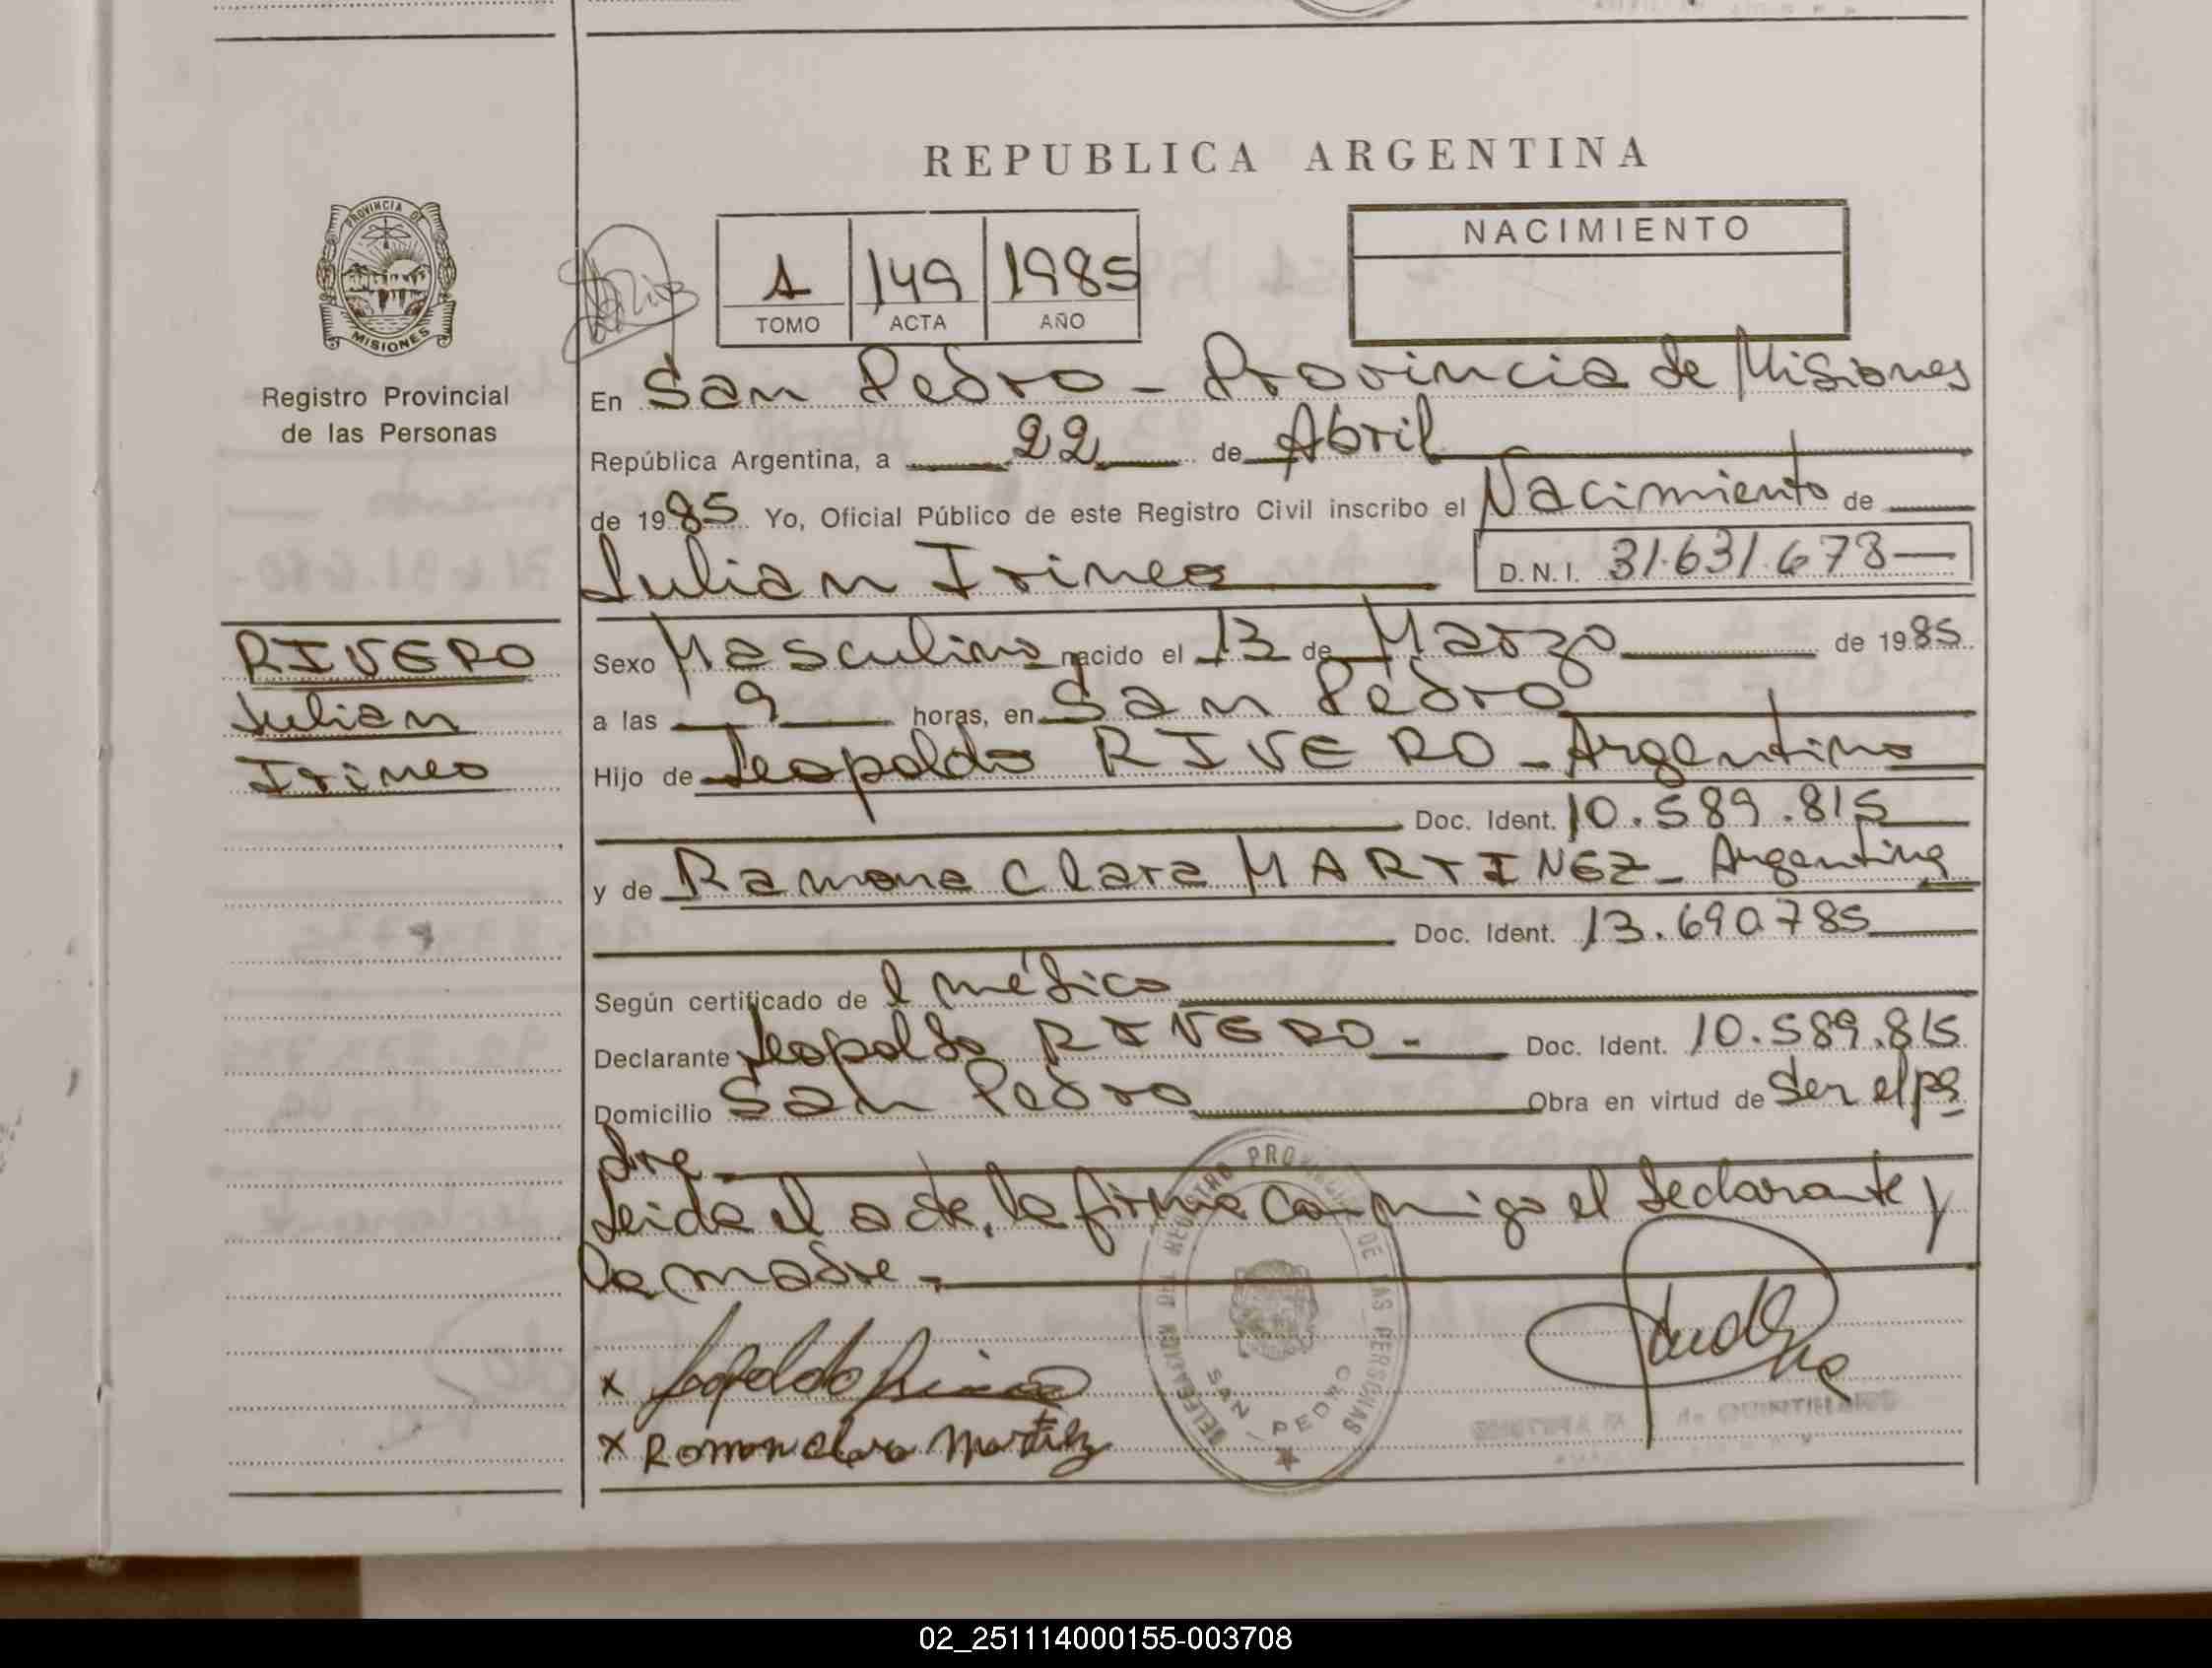 REPUBLICA ARGENTINA
PROVINCIA DE
MISIONES
Registro Provincial
de las Personas
1 149 1985
TOMO ACTA AÑO
NACIMIENTO
En San Pedro - Provincia de Misiones
República Argentina, a 22 de Abril
de 1985 Yo, Oficial Público de este Registro Civil inscribo el Nacimiento de
Julian Irineo D.N.I. 31.631.678
RIVERO
Julian
Irineo
Sexo Masculino nacido el 13 de Marzo de 1985
a las 9 horas, en San Pedro
Hijo de Leopoldo RIVERO - Argentino
Doc. Ident. 10.589.815
y de Ramona Clara MARTINEZ - Argentina
Doc. Ident. 13.690785
Según certificado de l médico
Declarante Leopoldo RIVERO - Doc. Ident. 10.589.815
Domicilio San Pedro Obra en virtud de ser el pa
dre -
Leida el acta, la firma conmigo el declarante y
la madre -
x Leopoldo Rivero
x Ramon Clara Martinez
DELEGACION DEL REGISTRO PROVINCIAL DE LAS PERSONAS
SAN PEDRO
02_251114000155-003708